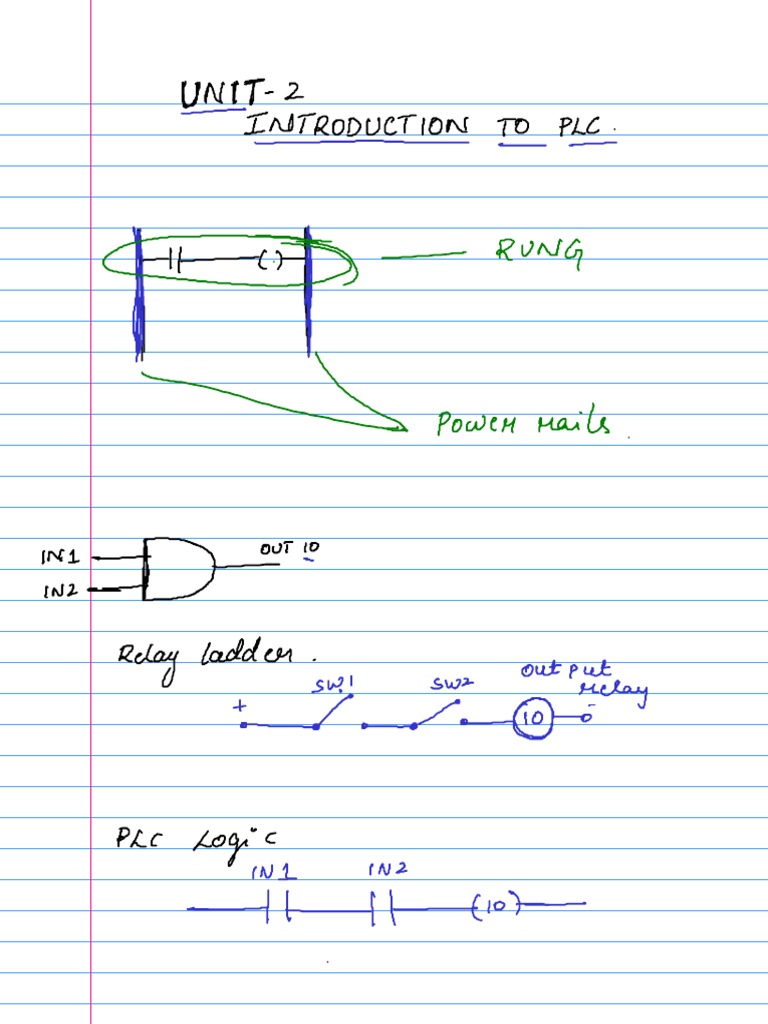 UNIT-2
INTRODUCTION TO PLC.
RUNG
Power rails.
IN1
OUT 10
IN2
Relay ladder.
output
SW1
SW2
relay
+
10
-
PLC Logic
IN1
IN2
(10)